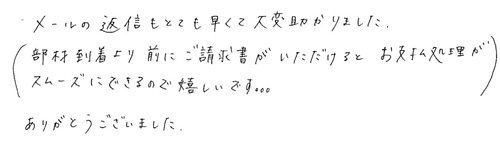 ・メールの返信もとても早くて大変助かりました.
(部材到着より前にご請求書がいただけると お支払処理が
スムーズにできるので嬉しいです...)
ありがとうございました.